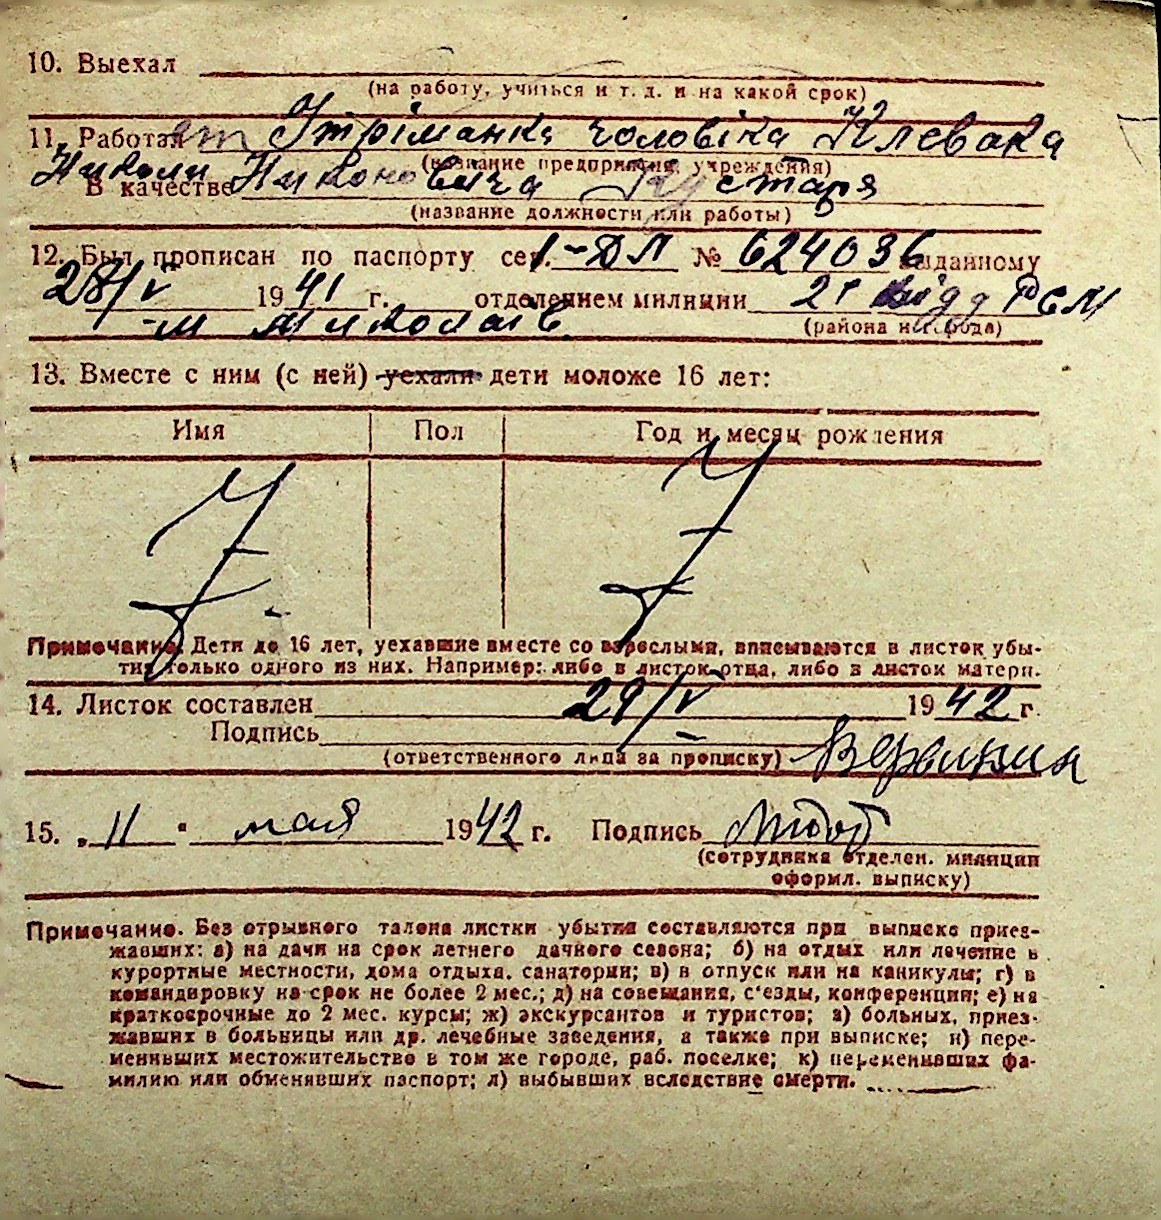 10. Выехал
(на работу, учиться и т. д. и на какой срок)
11. Работает Утріманка чоловіка Клевака
(название предприятия, учреждения)
Николи
В качестве Никоновича Кустаря
(название должности или работы)
12. Был прописан по паспорту сер. 1-ДЛ № 624036 выданному
28/V 1941 г. отделением милиции 2г відд РСМ
(района или города)
м Миколаїв
13. Вместе с ним (с ней) уехали дети моложе 16 лет:
Имя Пол Год и месяц рождения
Примечание. Дети до 16 лет, уехавшие вместе со взрослыми, вписываются в листок убы-
тия только одного из них. Например: либо в листок отца, либо в листок матери.
14. Листок составлен 29/V 1942 г.
Подпись
(ответственного лица за прописку)
15. „ 11 " мая 1942 г. Подпись
(сотрудника отделен. милиции
оформл. выписку)
Примечание. Без отрывного талона листки убытия составляются при выписке приез-
жавших: а) на дачи на срок летнего дачного сезона; б) на отдых или лечение в
курортные местности, дома отдыха, санатории; в) в отпуск или на каникулы; г) в
командировку на срок не более 2 мес.; д) на совещания, с'езды, конференции; е) на
краткосрочные до 2 мес. курсы; ж) экскурсантов и туристов; з) больных, приез-
жавших в больницы или др. лечебные заведения, а также при выписке; и) пере-
менивших местожительство в том же городе, раб. поселке; к) переменивших фа-
милию или обменивших паспорт; л) выбывших вследствие смерти.